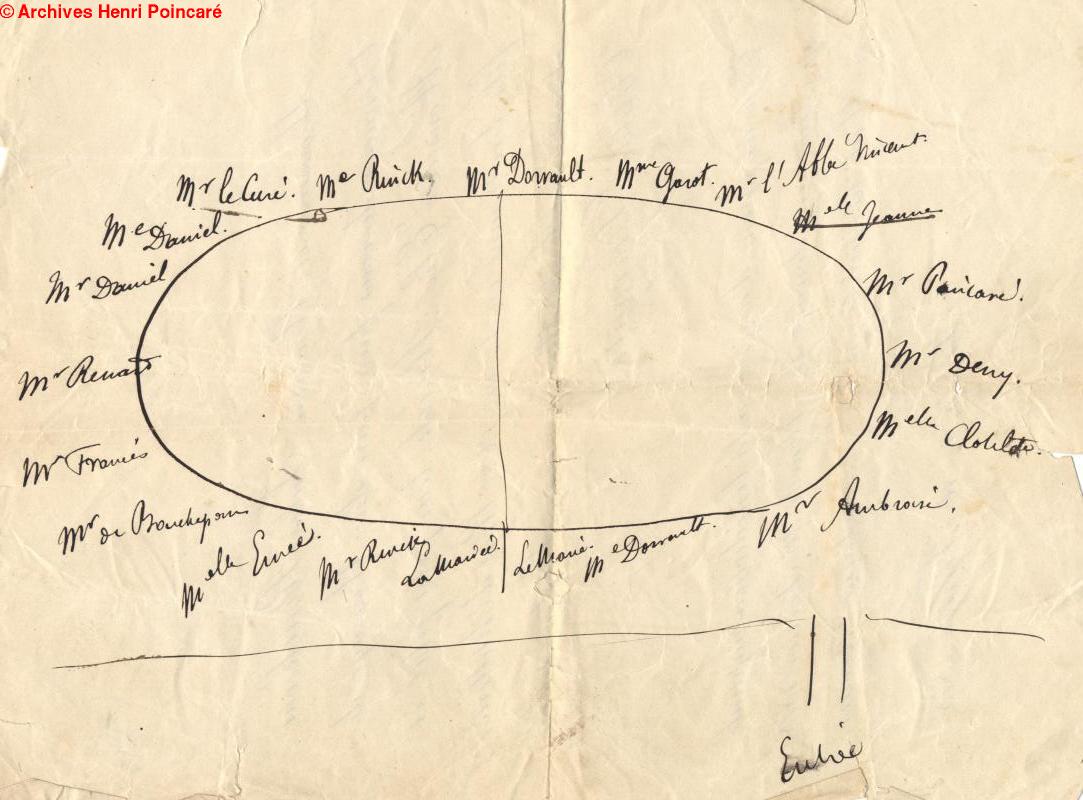 © Archives Henri Poincaré
Mr le Curé.
Me Rinck.
Mr Dorvault.
Mme Garot.
Mr l'Abbé Vincent.
Melle Jeanne
Me Daniel.
Mr Daniel
Mr Poincaré.
Mr Renard
Mr Deny.
Melle Clotilde.
Mr Francis
Mr Ambroise.
Mr de
Melle
Mr Rinck
La Mariée.
Le Marié.
Me Dorvault.
Entrée